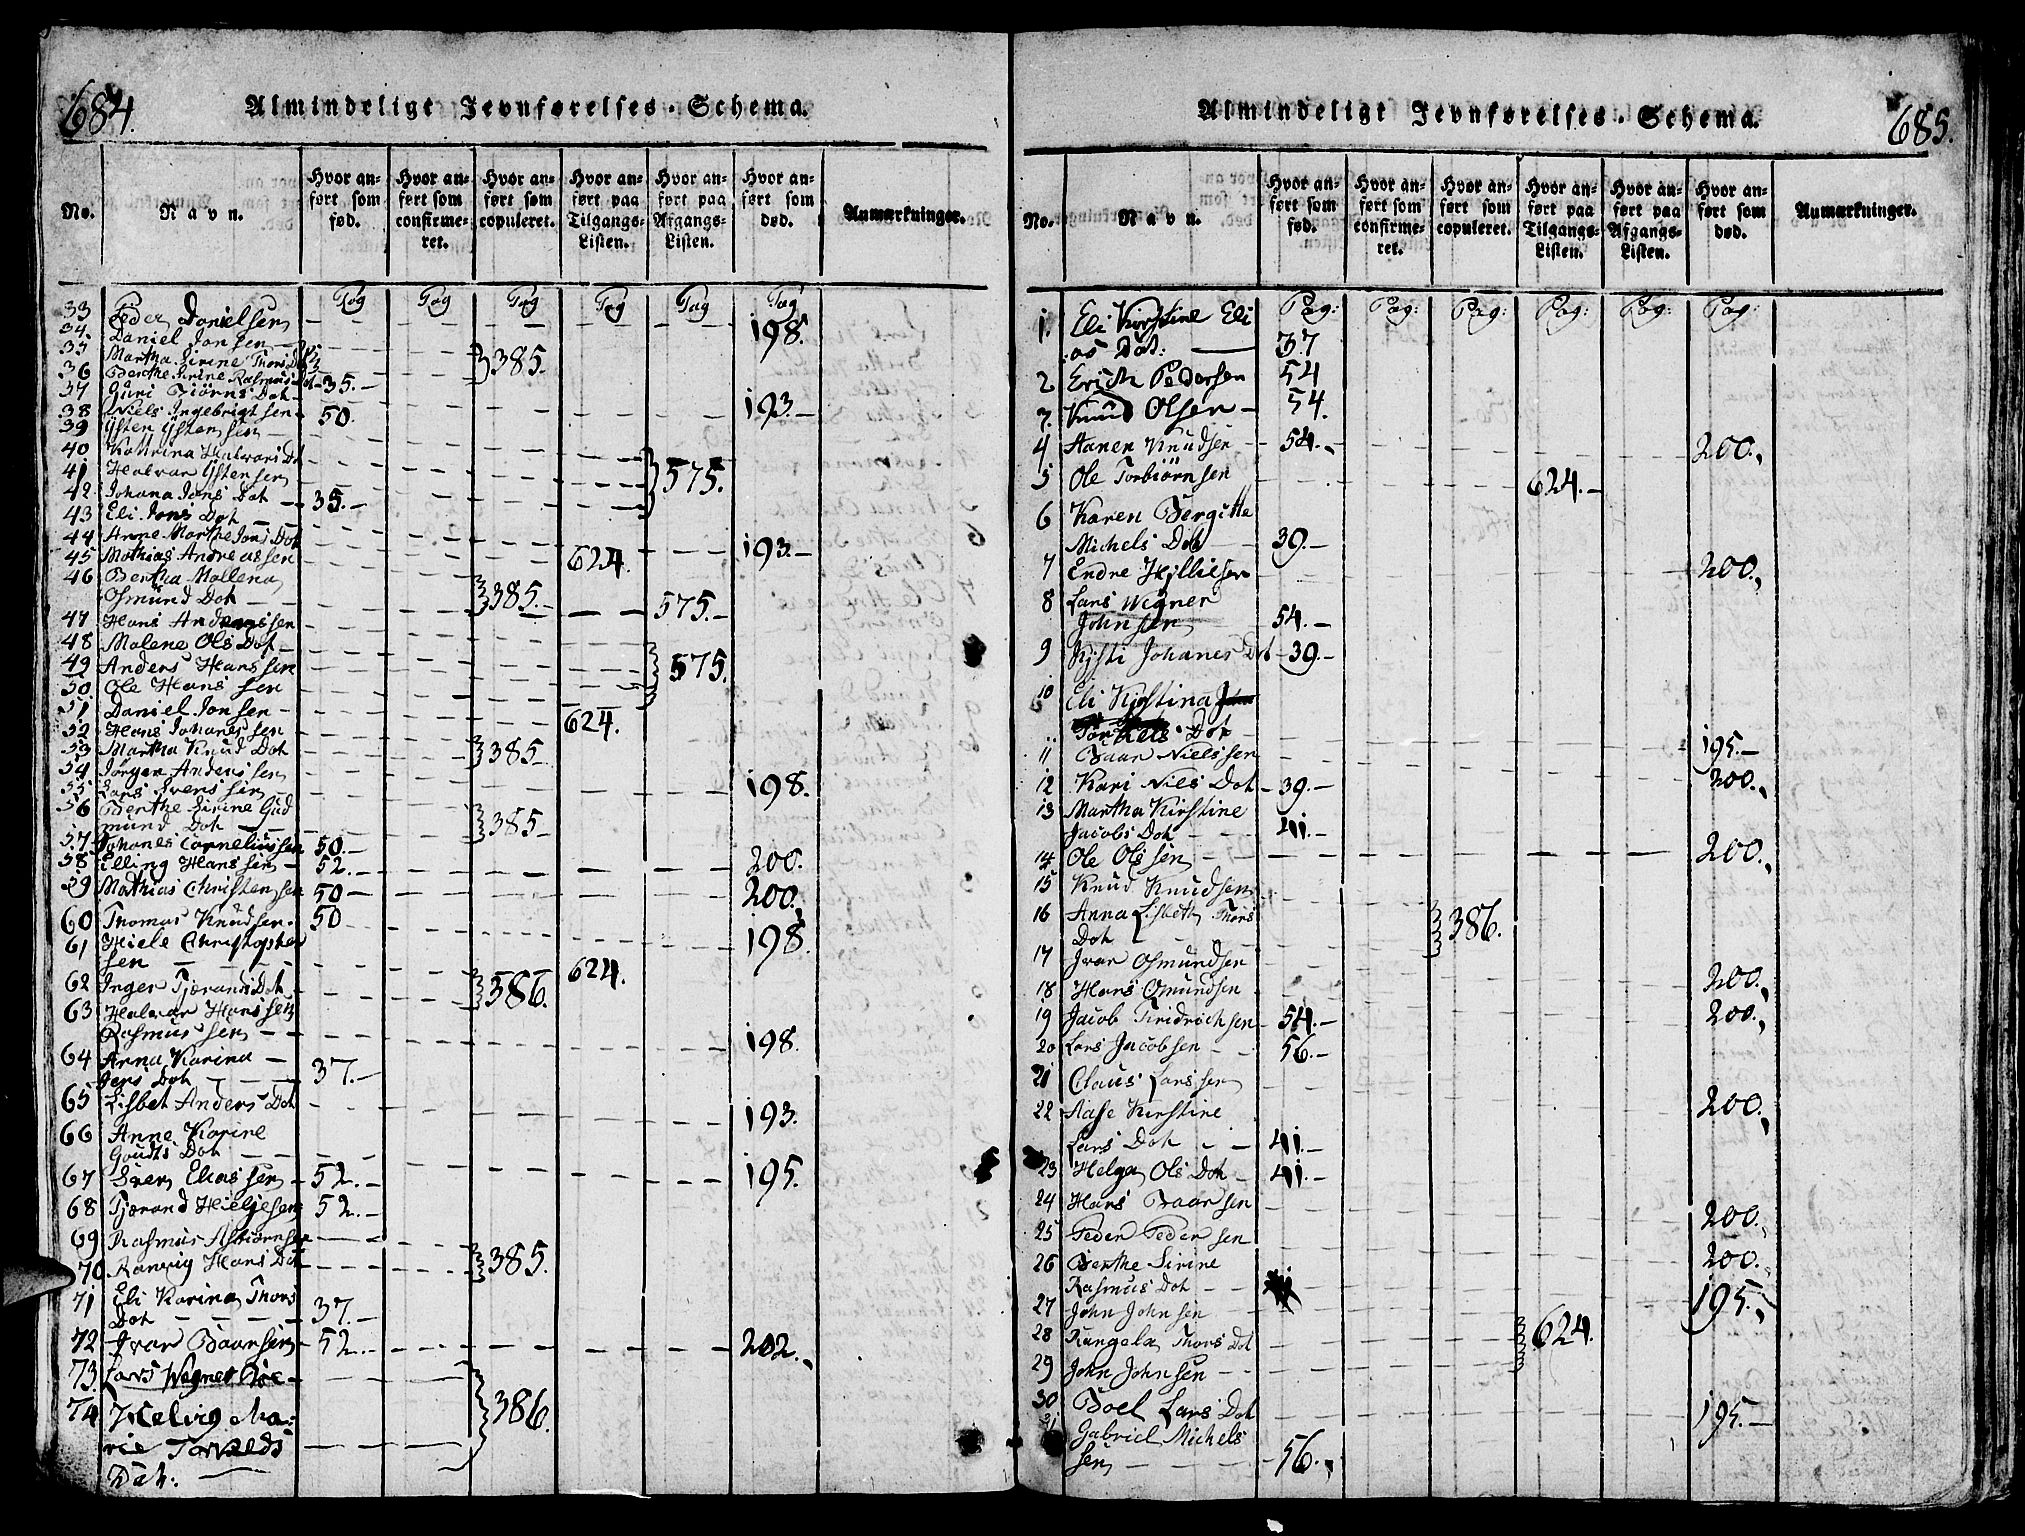 684.
Almindeligt Jevnførelses-Schema.
No. Navn. Hvor anført som fød. Hvor anført som confirmeret. Hvor anført som copuleret. Hvor anført paa Tilgangs-Listen. Hvor anført paa Afgangs-Listen. Hvor anført som død. Anmærkninger.
Pag Pag Pag Pag Pag Pag
33 Peder Danielsen 198.
34. Daniel Jonsen
35 Martha Sirine Thors Dot 385.
36 Berthe Sirine Rasmus Dot 35.
37 Guri Biørns Dot 193.
38 Niels Ingebrigtsen 50.
39 Østen Østensen
40 Kattrina Halvors Dt
41 Halvar Østensen 575.
42 Johana Jons Dot 35.
43 Eli Jons Dot
44 Anne Marthe Jons Dot 193.
45 Mathias Andreassen 624.
46 Bertha Mallena
Osmund Dot 385. 575.
47 Hans Andreassen
48 Malene Ols Dot
49 Anders Hanssen 575.
50 Ole Hanssen
51 Daniel Jonsen 624.
52 Hans Johanessen
53 Martha Knud Dot 385
54 Jørgen Anderssen
55 Lars Svenssen 198.
56 Berthe Sirine Gud
mund Dot 385
57 Johanes Corneliussen 50.
58 Elling Hanssen 52. 200.
59 Mathias Christensen 50 200.
60 Thomas Knudsen. 50
61 Hiele Christopher 198.
sen 624.
62 Inger Tjerands Dot 386.
63 Halvar Hanssen
Rasmussen 198.
64 Anna Karina
Jens Dot 37.
65 Lisbet Anders Dot 193.
66 Anne Karine
Gouts Dot
67 Sven Eliassen 52. 195.
68 Tjerand Hieljesen 52.
69 Rasmus Asbiørnsen
70 Ranvig Hans Dot 385.
71 Eli Karina Thors
Dot 37.
72 Ivar Baarsen 52. 202.
73. Lars Wegner
74 Helvig Ma-
rie Torkelds 386.
Dot.
685.
Almindeligt Jevnførelses-Schema.
No. Navn. Hvor anført som fød. Hvor anført som confirmeret. Hvor anført som copuleret. Hvor anført paa Tilgangs-Listen. Hvor anført paa Afgangs-Listen. Hvor anført som død. Anmærkninger.
Pag: Pag: Pag: Pag: Pag: Pag:
1. Eli Kirstine Eli
as Dot: 37
2 Erich Pedersen 54
3. Knud Olsen 54.
4 Aanen Knudsen 54. 200.
5 Ole Torbiørnsen 624.
6 Karen Bergitta
Michels Dot 39.
7 Endre Hilliesen 200.
8 Lars Wegner
Johnsen 54.
9 Kjsti Johanes Dot 39.
10 Eli Kirstina
Torkels Dot
11 Baar Nielssen 195.
12 Kari Niels Dot 39. 200.
13 Martha Kirstine
Jacobs Dot 41.
14 Ole Olssen 200.
15 Knud Knudsen
16 Anna Lisbeth Thors
Dot 386.
17 Ivar Osmundsen 200.
18 Hans Omundsen 200.
19 Jacob Fridrichsen 54.
20 Lars Jacobsen 56.
21 Claus Larssen 200.
22 Aase Kirstine
Lars Dot 41.
23 Helga Ols Dot 41.
24 Hans Baarsen 200.
25 Peder Pedersen 200.
26 Berthe Sirine
Rasmus Dot
27 John Johnsen 195.
28 Rangela Thors Dot 624.
29 John Johnsen
30 Boel Lars Dot 195.
31 Gabriel Michels
sen 56.